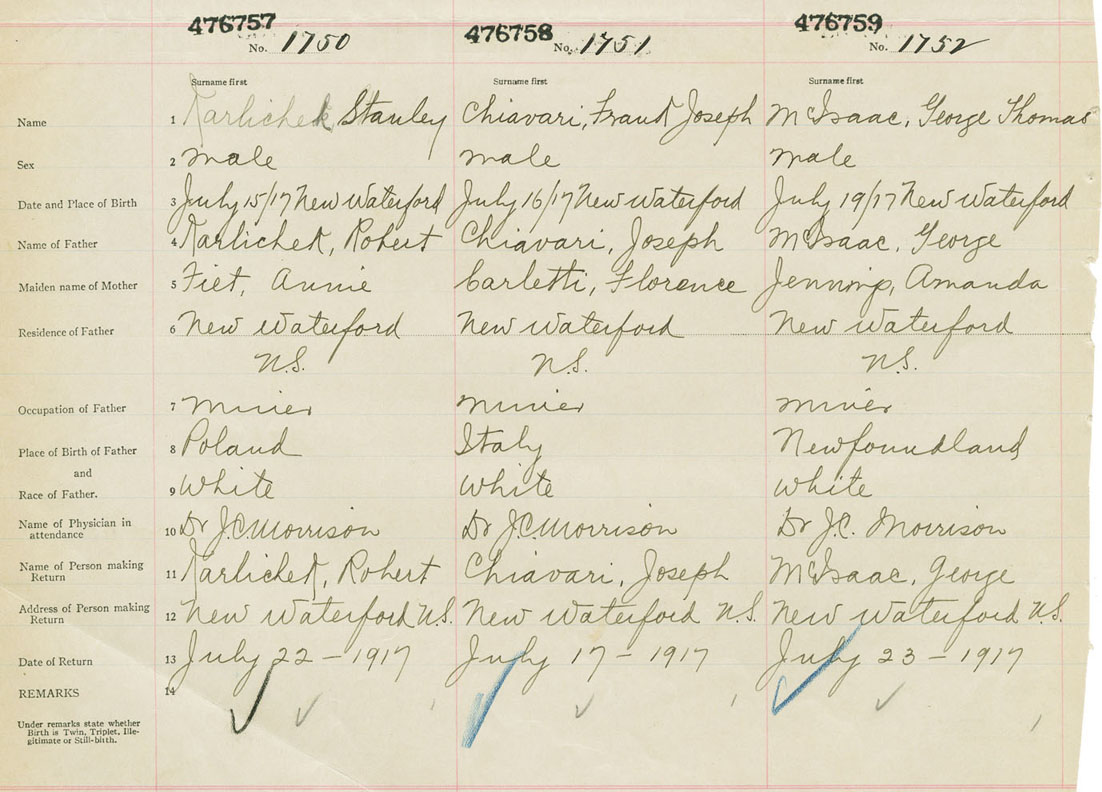 476757 476758 476759
No. 1750 No. 1751 No. 1752
Surname first Surname first Surname first
Name 1 Karlichek, Stanley Chiavari, Frank Joseph McIsaac, George Thomas
Sex 2 male male male
Date and Place of Birth 3 July 15/17 New Waterford July 16/17 New Waterford July 19/17 New Waterford
Name of Father 4 Karlichek, Robert Chiavari, Joseph McIsaac, George
Maiden name of Mother 5 Fiet, Annie Carletti, Florence Jennings, Amanda
Residence of Father 6 New Waterford New Waterford New Waterford
N.S. N.S. N.S.
Occupation of Father 7 miner miner miner
Place of Birth of Father 8 Poland Italy Newfoundland
and
Race of Father. 9 White White White
Name of Physician in
attendance 10 Dr J.C. Morrison Dr J.C. Morrison Dr J.C. Morrison
Name of Person making
Return 11 Karlichek, Robert Chiavari, Joseph McIsaac, George
Address of Person making
Return 12 New Waterford N.S. New Waterford N.S. New Waterford N.S.
Date of Return 13 July 22 - 1917 July 17 - 1917 July 23 - 1917
REMARKS 14
Under remarks state whether
Birth is Twin, Triplet, Ille-
gitimate or Still-birth.